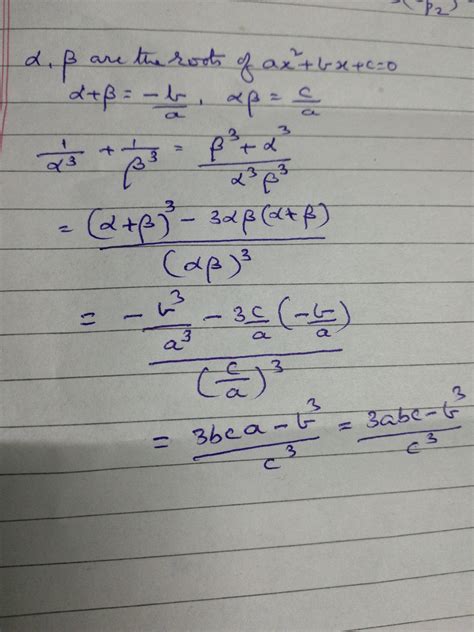 -p₂)
α, β are the roots of ax²+bx+c=0
α+β = -b/a, αβ = c/a
1/α³ + 1/β³ = (β³+α³)/(α³β³)
= ((α+β)³ - 3αβ(α+β))/(αβ)³
= (-b³/a³ - 3c/a(-b/a))/(c/a)³
= (3bca - b³)/c³ = (3abc - b³)/c³